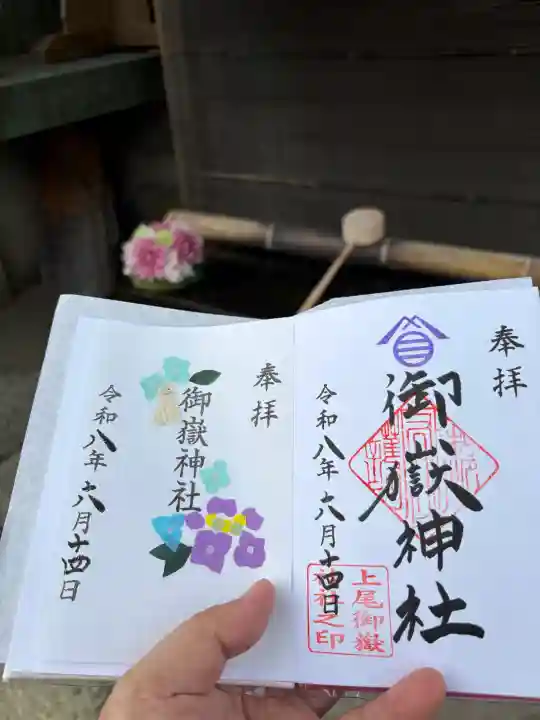 奉拝
御嶽神社
上尾御嶽
神社之印
令和八年六月十四日
奉拝
御嶽神社
令和八年六月十四日